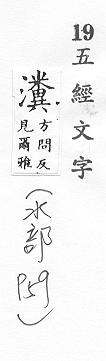 19五經文字
瀵
方問反
見爾雅
(水部 P59)